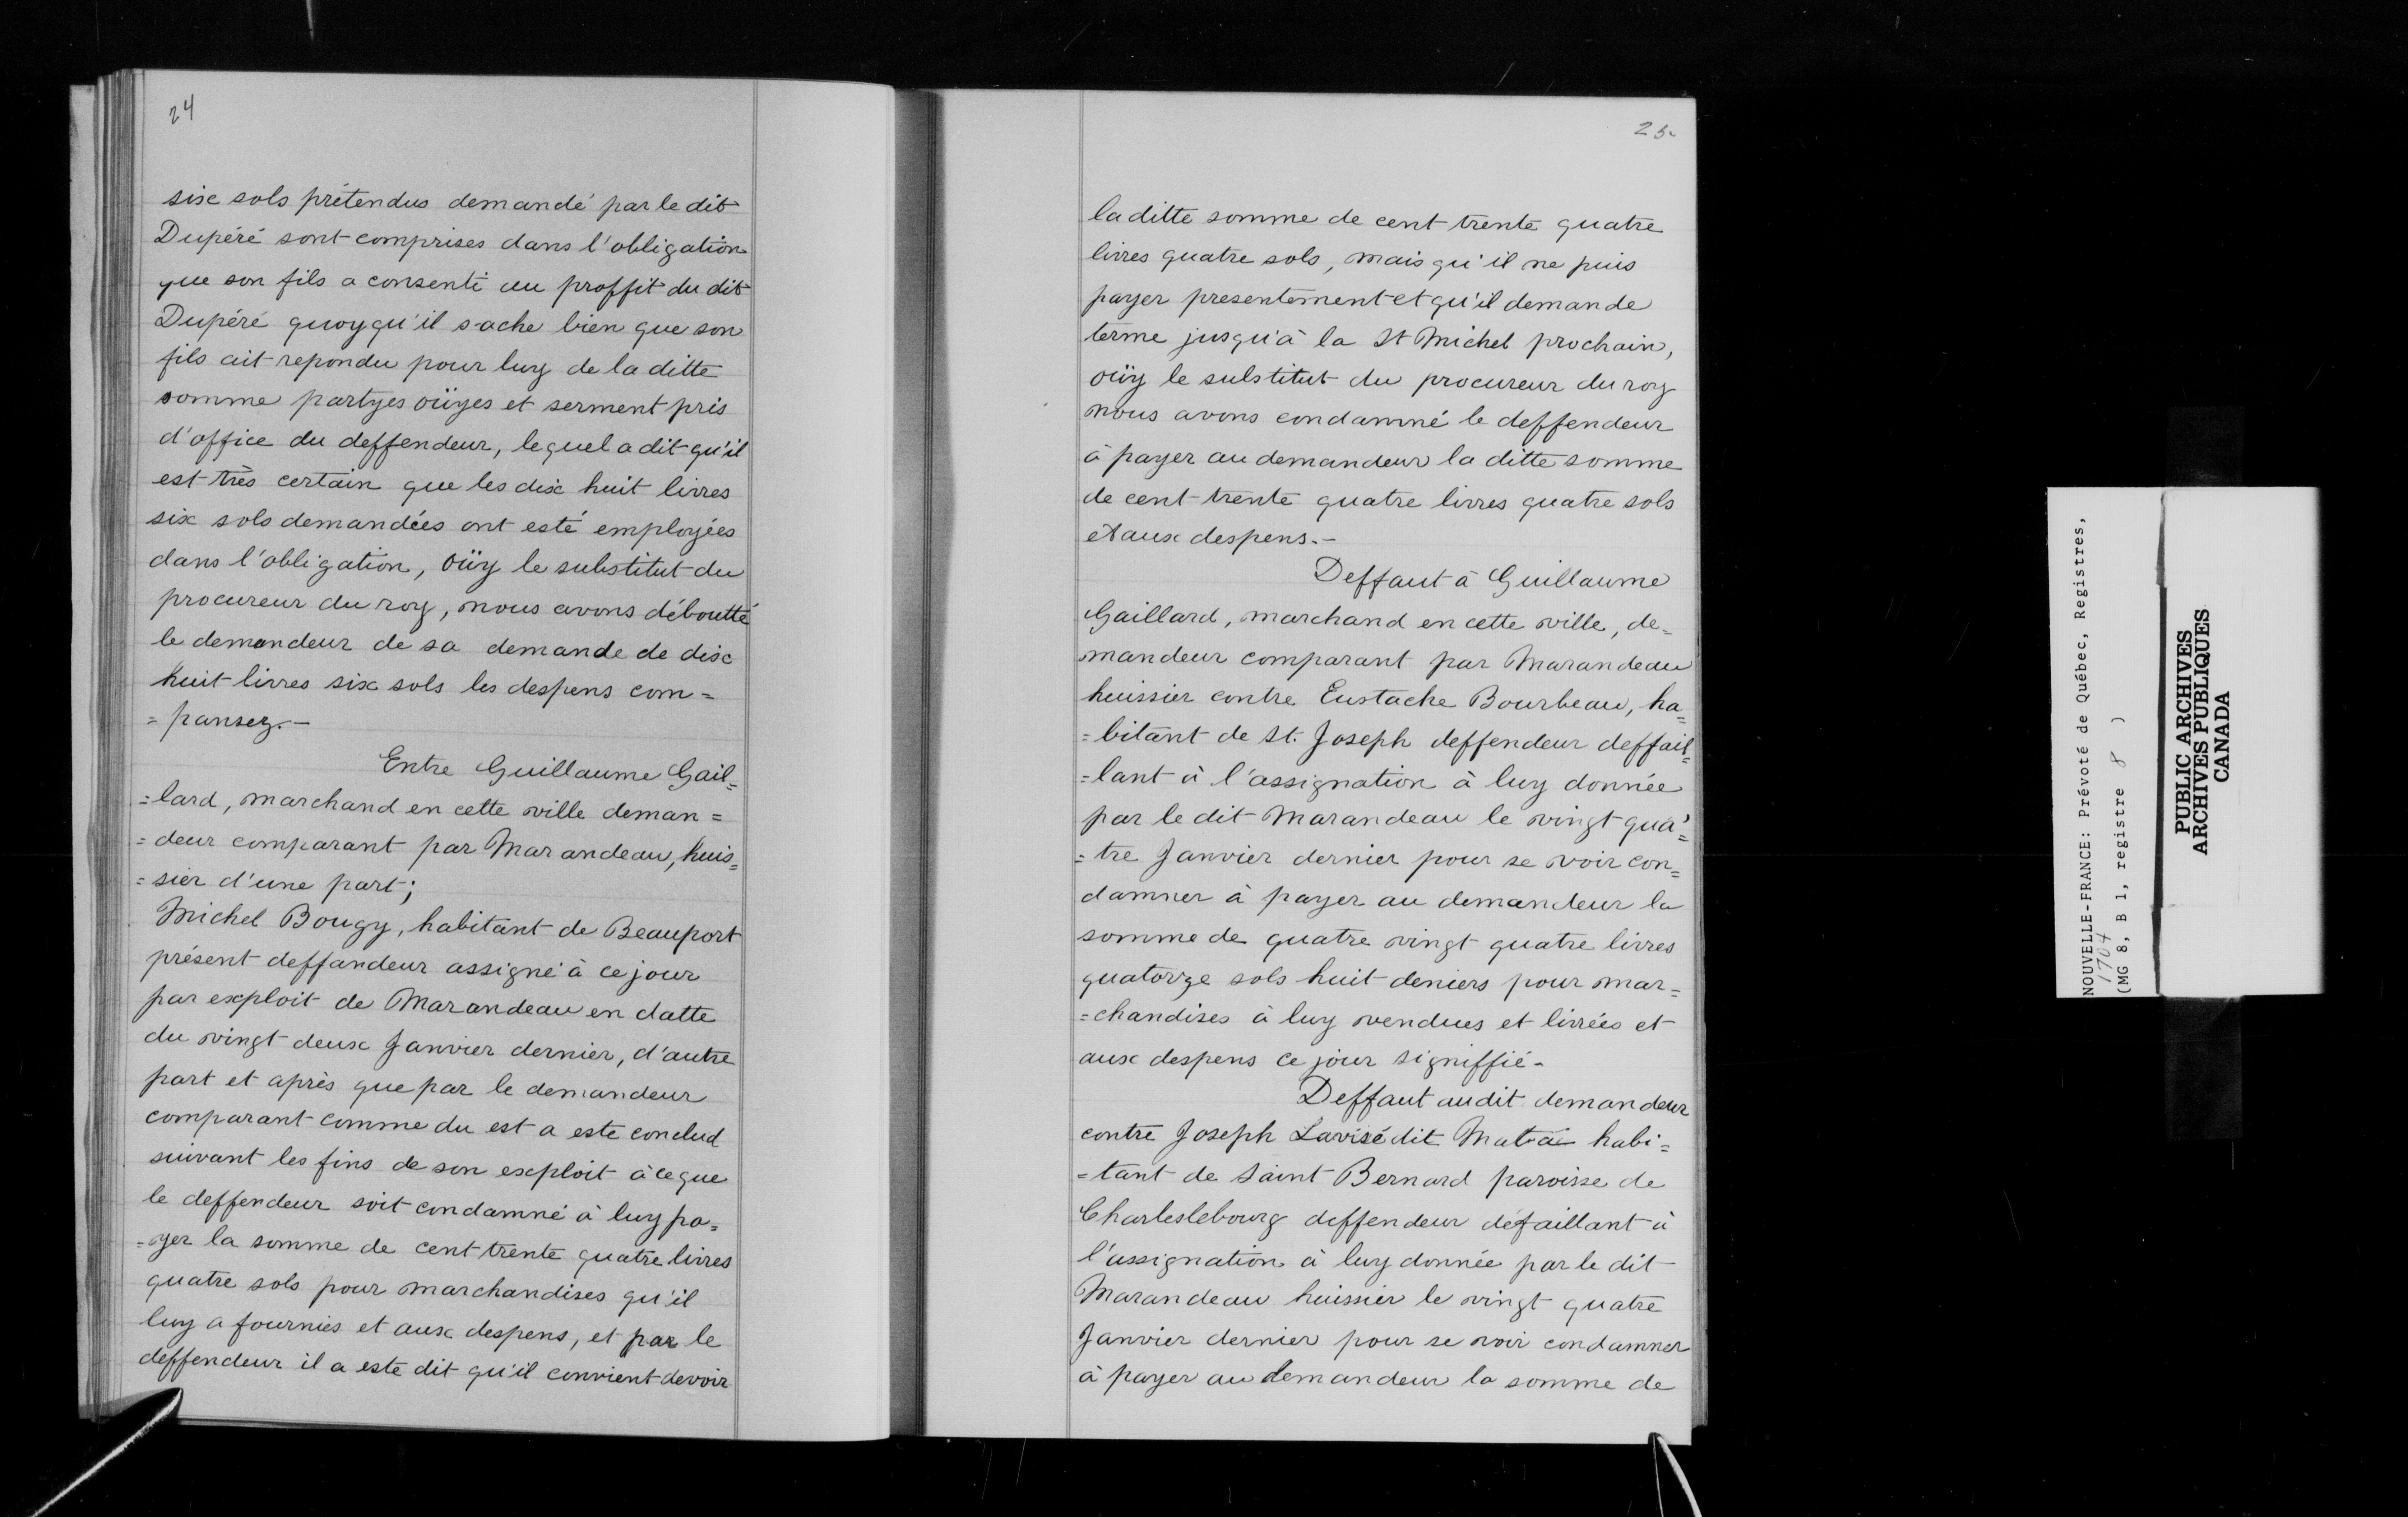 24
six sols prétendus demandé par le dit
Dupéré sont comprises dans l'obligation
que son fils a consenti au proffit du dit
Dupéré quoyqu'il sache bien que son
fils ait repondu pour luy de la ditte
somme partyes oüyes et serment pris
d'office du deffendeur, lequel a dit qu'il
est très certain que les dix huit livres
six sols demandées ont esté employées
dans l'obligation, oüy le substitut du
procureur du roy, nous avons déboutté
le demandeur de sa demande de dix
huit livres six sols les despens com=
=pansez.-
Entre Guillaume Gail=
=lard, marchand en cette ville deman=
=deur comparant par Marandeau, huis=
=sier d'une part;
Michel Bougy, habitant de Beauport
présent deffandeur assigné à ce jour
par exploit de Marandeau en datte
du vingt deux Janvier dernier, d'autre
part et après que par le demandeur
comparant comme du est a este conclud
suivant les fins de son exploit à ce que
le deffendeur soit condamné à luy pa=
=yer la somme de cent trente quatre livres
quatre sols pour marchandises qu'il
luy a fournies et aux despens, et par le
deffendeur il a este dit qu'il convient devoir
25
la ditte somme de cent trente quatre
livres quatre sols, mais qu'il ne puis
payer presentement et qu'il demande
terme jusqu'à la St Michel prochain,
oüy le substitut du procureur du roy
nous avons condamné le deffendeur
à payer au demandeur la ditte somme
de cent trente quatre livres quatre sols
et aux despens.-
Deffaut à Guillaume
Gaillard, marchand en cette ville, de=
mandeur comparant par Marandeau
huissier contre Eustache Bourbeau, ha=
=bitant de St. Joseph deffendeur deffail=
=lant à l'assignation à luy donnée
par le dit Marandeau le vingt qua=
=tre Janvier dernier pour se voir con=
damner à payer au demandeur la
somme de quatre vingt quatre livres
quatorze sols huit deniers pour mar=
=chandises à luy vendues et livrées et
aux despens ce jour signiffié-
Deffaut audit demandeur
contre Joseph Lavisé dit habi=
=tant de Saint Bernard paroisse de
Charleslebourg deffendeur défaillant à
l'assignation à luy donnée par le dit
Marandeau huissier le vingt quatre
Janvier dernier pour se voir condamner
à payer au demandeur la somme de
NOUVELLE-FRANCE: Prévoté de Québec, Registres,
1704
(MG 8, B 1, registre 8 )
PUBLIC ARCHIVES
ARCHIVES PUBLIQUES
CANADA